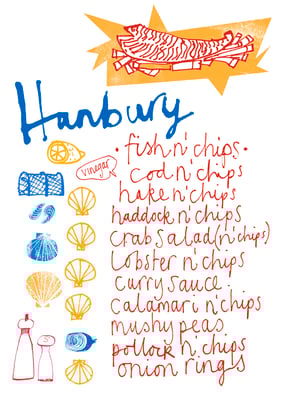 Hanbury
• fish n' chips •
vinegar
cod n' chips
hake n' chips
haddock n' chips
crab salad (n' chips)
lobster n' chips
curry sauce
calamari n' chips
mushy peas
pollock n' chips
onion rings